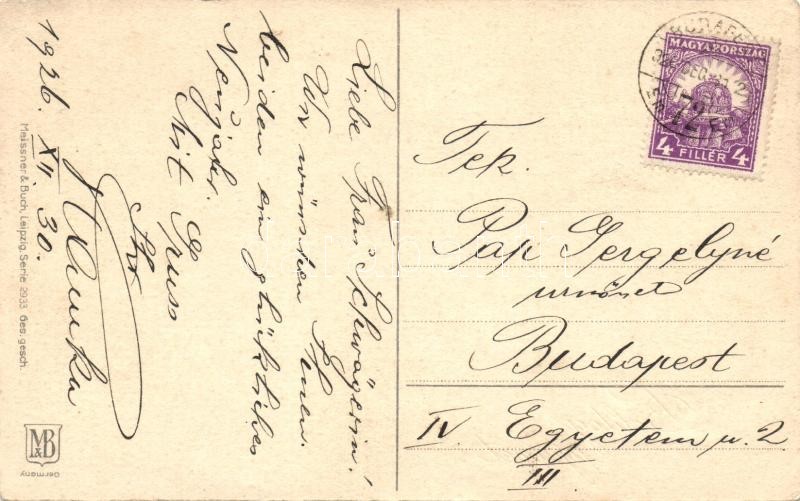 1926. XII. 30.
Liebe Frau Schwägerin!
Wir wünschen Ihnen
beiden ein glückliches
Neujahr.
Mit Gruss
Ihr
Meissner & Buch, Leipzig. Serie 2933. Ges. gesch.
M&B
Germany
MAGYARORSZÁG
4 FILLÉR 4
Tek.
Pap Gergelyné
úrnőnek
Budapest
IV. Egyetem u. 2
III